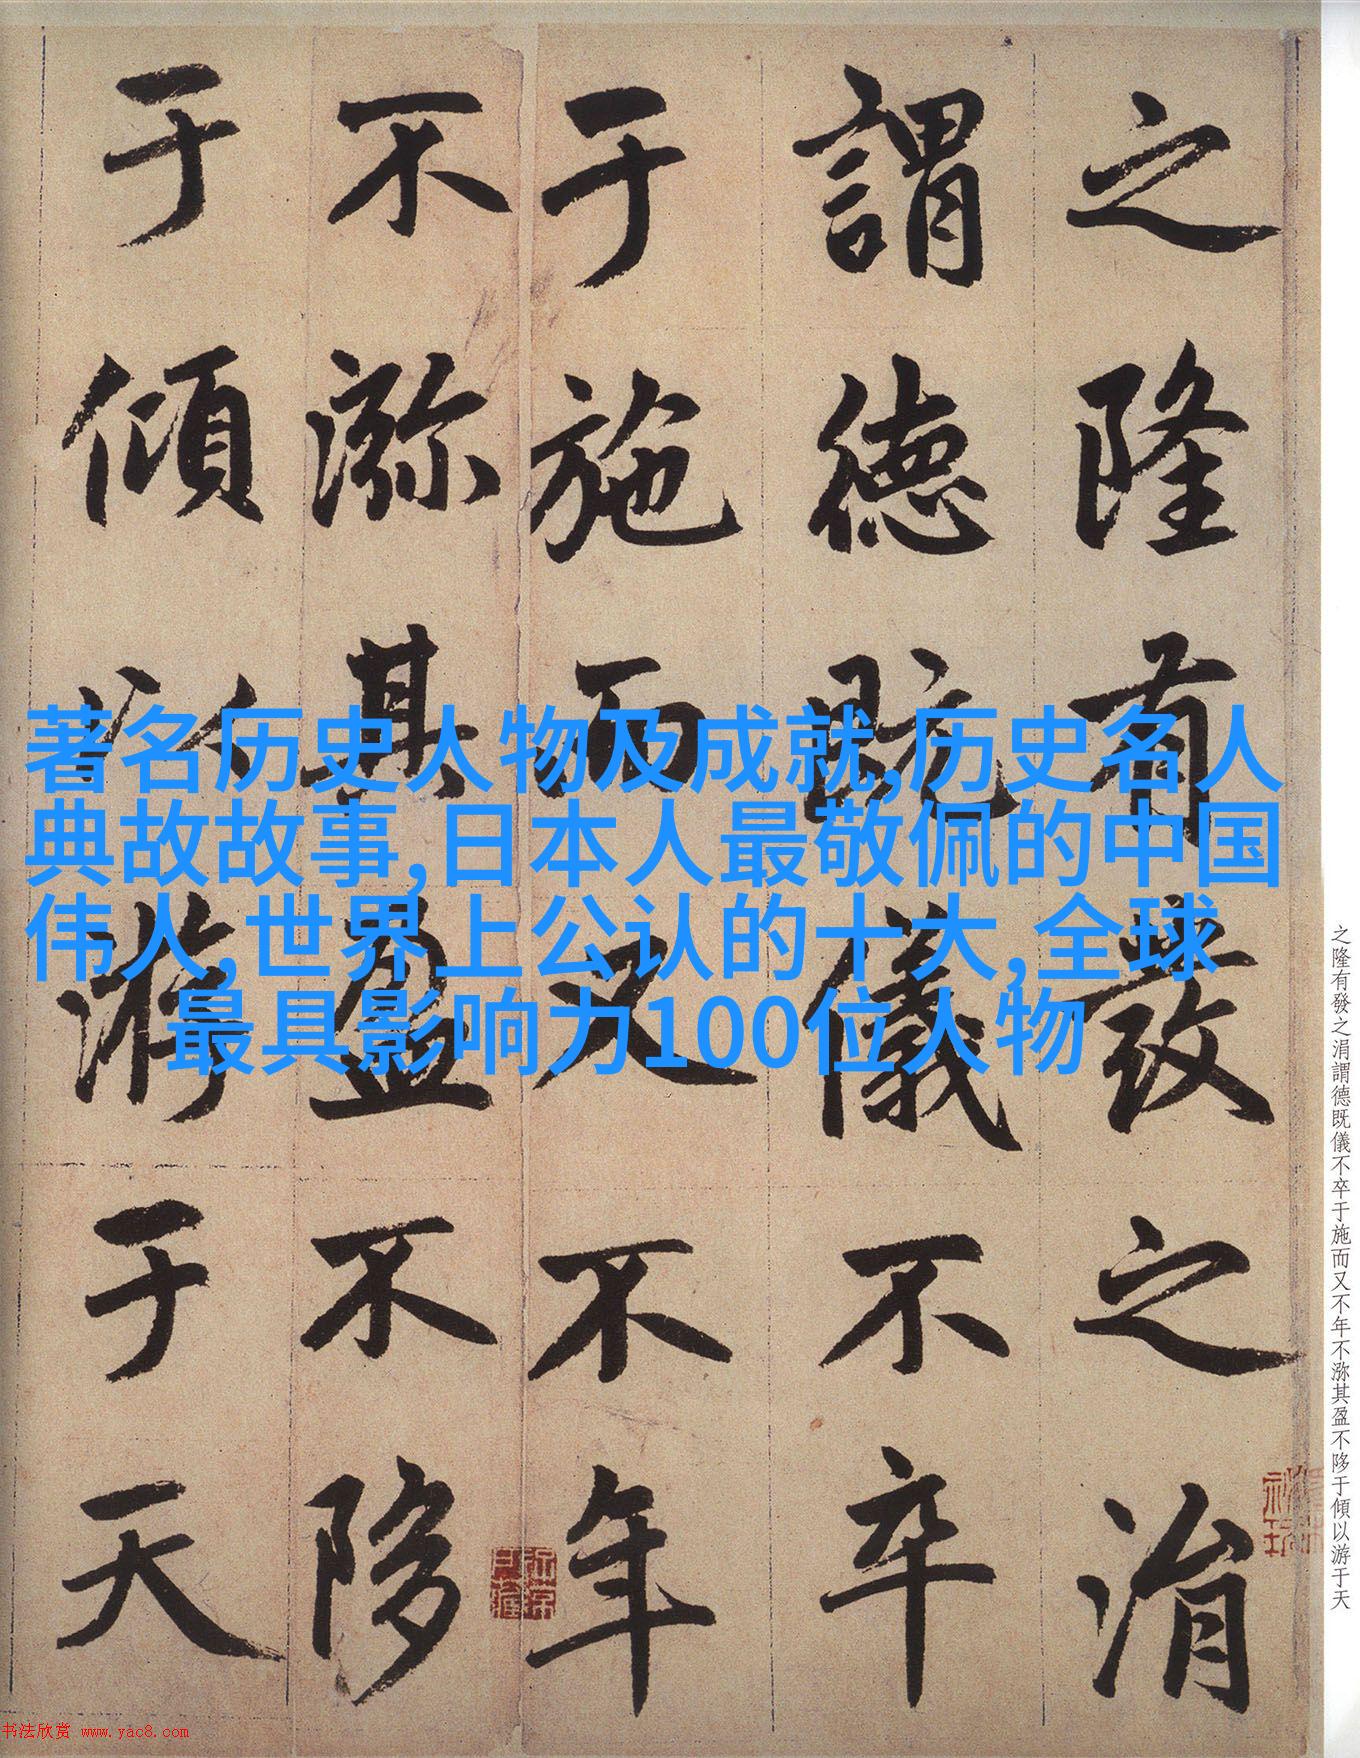 之隆有發之涓
謂德既儀不卒
于施而又不年
不泖其盈不陊
于傾以游于天
著名历史人物及成就,历史名人
典故故事,日本人最敬佩的中国
伟人,世界上公认的十大,全球
最具影响力100位人物
之隆有發之涓謂德既儀不卒于施而又不年不泖其盈不陊于傾以游于天
书法欣赏 www.yac8.com